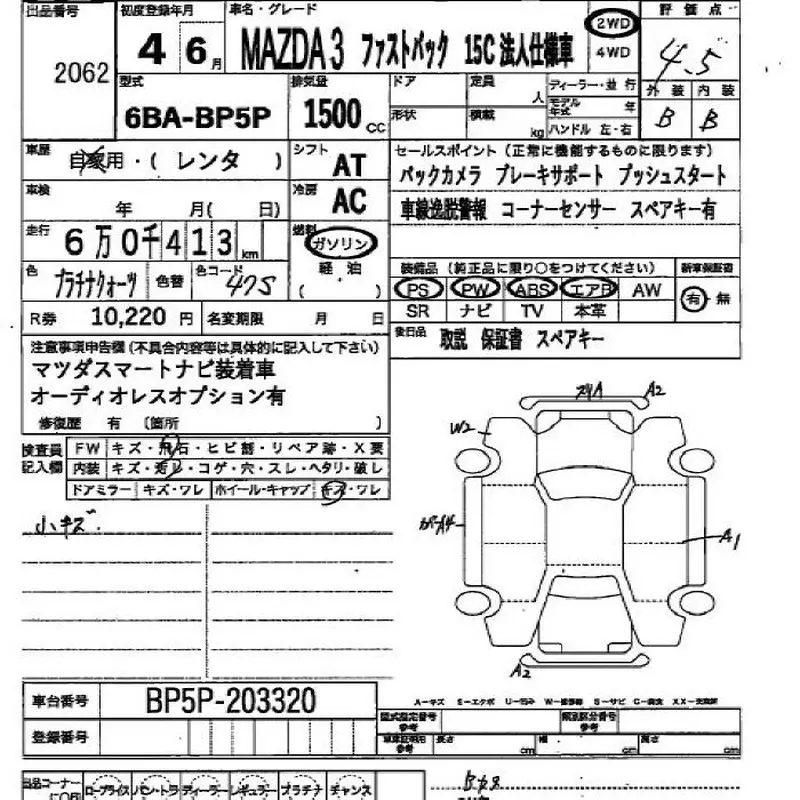 出品番号 初度登録年月 車名・グレード 評価点
2062 4 6月 MAZDA3 ファストバック 15C 法人仕様車 2WD 4WD 4.5
外装 内装
B B
型式 排気量 ドア 定員 人 ディーラー・並行
6BA-BP5P 1500CC 形状 積載 kg モデル年式 年
ハンドル 左・右
車歴 自家用・( レンタ ) シフト AT セールスポイント (正常に機能するものに限ります)
バックカメラ ブレーキサポート プッシュスタート
車検 年 月( 日) 冷房 AC 車線逸脱警報 コーナーセンサー スペアキー有
走行 6万0千413km 燃料 ガソリン
軽油
( )
色 プラチナクォーツ 色替 色コード 47S
装備品 (純正品に限り○をつけてください) 新車保証書
PS PW ABS エアB AW 有・無
SR ナビ TV 本革
R券 10,220円 名変期限 月 日
後日品 取説 保証書 スペアキー
注意事項申告欄(不具合内容等は具体的に記入して下さい)
マツダスマートナビ装着車
オーディオレスオプション有
修復歴 有 〔箇所 〕
検査員記入欄 FW キズ・飛石・ヒビ割・リペア跡・X要
内装 キズ・汚レ・コゲ・穴・スレ・ヘタリ・破レ
ドアミラー キズ・ワレ ホイール・キャップ キズ・ワレ
小キズ
A2
W2
A1
A2
車台番号 BP5P-203320
登録番号
A-キズ E-エクボ
型式指定番号 参考 類別区分番号 参考
車庫証明用 参考 長さ cm 幅 cm 高さ cm
出品コーナー ロープライス バン・トラ ディーラー レギュラー プラチナ チャンス